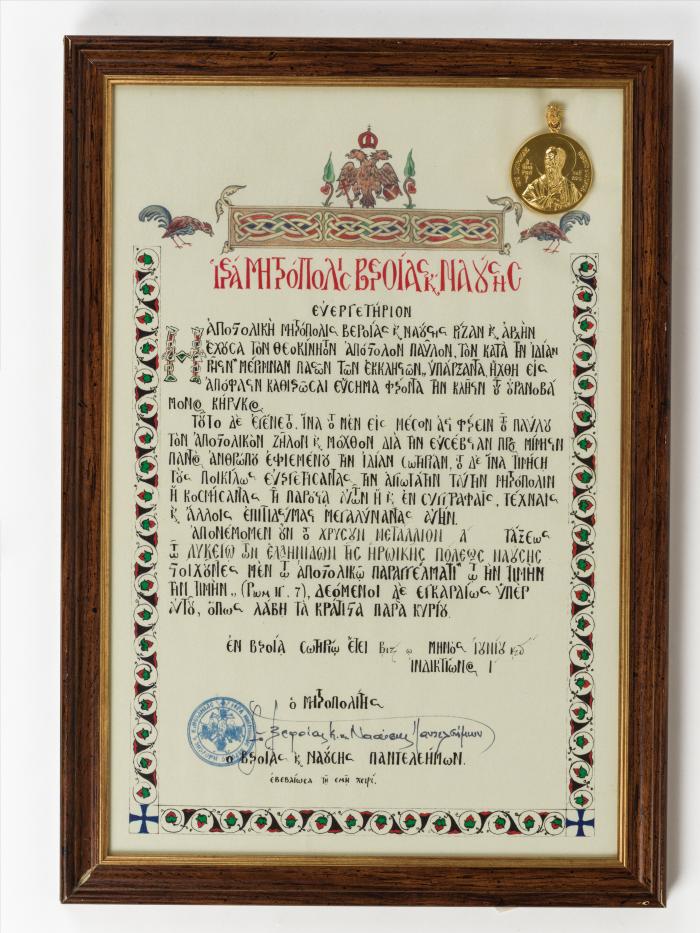 ἹΕΡᾺ ΜΗΤΡΌΠΟΛΙΣ ΒΕΡΟΊΑΣ Κ ΝΑΟΎΣΗΣ
ΕΥΕΡΓΕΤΗΡΙΟΝ
Η ΑΠΟΣΤΟΛΙΚΗ ΜΗΤΡΟΠΟΛΙΣ ΒΕΡΟΙΑΣ Κ ΝΑΟΥΣΗΣ ΡΙΖΑΝ Κ ΑΡΧΗΝ
ΕΧΟΥΣΑ ΤΟΝ ΘΕΟΚΙΝΗΤΟΝ ΑΠΟΣΤΟΛΟΝ ΠΑΥΛΟΝ, ΤΟΝ ΚΑΤΑ ΤΗΝ ΙΔΙΑΝ
ΜΕΡΙΜΝΑΝ ΠΑΣΩΝ ΤΩΝ ΕΚΚΛΗΣΙΩΝ„ ΥΠΑΡΞΑΝΤΑ, ΗΧΘΗ ΕΙΣ
ΑΠΟΦΑΣΙΝ ΚΑΘΙΕΡΩΣΑΙ ΕΥΣΧΗΜΑ ΦΕΡΟΝΤΑ ΤΗΝ ΚΛΗΣΙΝ ΤΟΥ ΟΥΡΑΝΟΒΑ
ΜΟΝΟΣ ΚΗΡΥΚΟΣ
ΤΟΥΤΟ ΔΕ ΕΓΕΝΕΤΟ, ΙΝΑ ΤΟ ΜΕΝ ΕΙΣ ΜΕΣΟΝ ΑΣ ΦΕΡΕΙΝ ΤΟΥ ΠΑΥΛΟΥ
ΤΟΝ ΑΠΟΣΤΟΛΙΚΟΝ ΖΗΛΟΝ Κ ΜΟΧΘΟΝ ΔΙΑ ΤΗΝ ΕΥΣΕΒΕΙΑΝ ΠΡΟΣ ΜΙΜΗΣΙΝ
ΠΑΝΤΟΣ ΑΝΘΡΩΠΟΥ ΕΦΙΕΜΕΝΟΥ ΤΗΝ ΙΔΙΑΝ ΣΩΤΗΡΙΑΝ, ΤΟ ΔΕ ΙΝΑ ΤΙΜΗΣΗ
ΤΟΥΣ ΠΟΙΚΙΛΩΣ ΕΥΕΡΓΕΤΗΣΑΝΤΑΣ ΤΗΝ ΑΓΙΩΤΑΤΗΝ ΤΑΥΤΗΝ ΜΗΤΡΟΠΟΛΙΝ
Η ΚΟΣΜΗΣΑΝΤΑΣ ΤΗ ΠΑΡΟΥΣΙΑ ΑΥΤΩΝ Η Κ ΕΝ ΣΥΓΓΡΑΦΑΙΣ, ΤΕΧΝΑΙΣ
Κ ΑΛΛΟΙΣ ΕΠΙΤΗΔΕΥΜΑΣΙ ΜΕΓΑΛΥΝΑΝΤΑΣ ΑΥΤΗΝ.
ΑΠΟΝΕΜΟΜΕΝ ΟΥΝ ΤΟ ΧΡΥΣΟΥΝ ΜΕΤΑΛΛΙΟΝ Α΄ ΤΑΞΕΩΣ
ΤΩ ΛΥΚΕΙΩ ΤΩΝ ΕΛΛΗΝΙΔΩΝ ΤΗΣ ΗΡΩΙΚΗΣ ΠΟΛΕΩΣ ΝΑΟΥΣΗΣ
ΣΤΟΙΧΟΥΝΤΕΣ ΜΕΝ ΤΩ ΑΠΟΣΤΟΛΙΚΩ ΠΑΡΑΓΓΕΛΜΑΤΙ" ΤΩ ΤΗΝ ΤΙΜΗΝ
ΤΗΝ ΤΙΜΗΝ„ (Ρωμ. ιγ΄. 7), ΔΕΟΜΕΝΟΙ ΔΕ ΕΓΚΑΡΔΙΩΣ ΥΠΕΡ
ΑΥΤΟΥ, ΟΠΩΣ ΛΑΒΗ ΤΑ ΚΡΑΤΙΣΤΑ ΠΑΡΑ ΚΥΡΙΟΥ.
ΕΝ ΒΕΡΟΙΑ ΣΩΤΗΡΙΩ ΕΤΕΙ ΜΗΝΟΣ ΙΟΥΝΙΟΥ
ΙΝΔΙΚΤΙΩΝΟΣ Ι΄
Ὁ ΜΗΤΡΟΠΟΛΙΤΗΣ
Βεροίας κ. Ναούσης Παντελεήμων
Ο ΒΕΡΟΙΑΣ Κ ΝΑΟΥΣΗΣ ΠΑΝΤΕΛΕΗΜΩΝ.
ΕΒΕΒΑΙΩΣΑ ΤΗ ΕΜΗ ΧΕΙΡΙ.